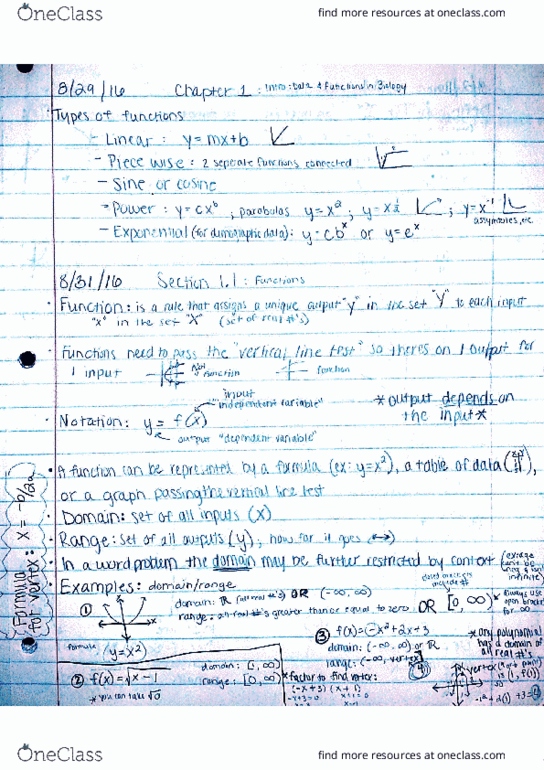 OneClass
find more resources at oneclass.com
8/29/16 Chapter 1 : Intro: Data & Functions in Biology
Types of functions
- Linear : y = mx+b
- Piece wise : 2 seperate functions connected
- Sine or cosine
- Power : y = cx^b ; parabolas y = x² ; y = x^½ ; y = x⁻¹
asymptotes, etc
- Exponential (for demographic data): y = cb^x or y = e^x
8/31/16 Section 1.1 : Functions
· Function: is a rule that assigns a unique output "y" in the set "Y" to each input
"x" in the set "X" (set of real #'s)
· Functions need to pass the "vertical line test" so theres on 1 output for
1 input not function function
input
"independent variable"
· Notation: y = f(x)
output "dependent variable"
*output depends on
the input*
· A function can be represented by a formula (ex: y=x²), a table of data
or a graph passing the vertical line test
· Domain: set of all inputs (x)
· Range: set of all outputs (y), how far it goes
· In a word problem the domain may be further restricted by context
infinite)
Formula
for vertex: x = -b/2a
· Examples: domain/range
① domain: ℝ OR (-∞, ∞)
range: all real #'s greater than or equal to zero OR [0, ∞)
*Always use
open bracket
for ∞
formula (y = x²)
② f(x) = √x-1
domain: [1, ∞)
range: [0, ∞)
*you can take √0
③ f(x) = -x²+2x+3
domain: (-∞, ∞) or ℝ
range: (-∞, vertex]
*factor to find vertex:
(-x+3)(x+1)
-x+3=0 x+1=0
*any polynomial
has a domain of
all real #'s
vertex
is (1, f(1))
-1²+2(1)+3=4
OneClass
find more resources at oneclass.com